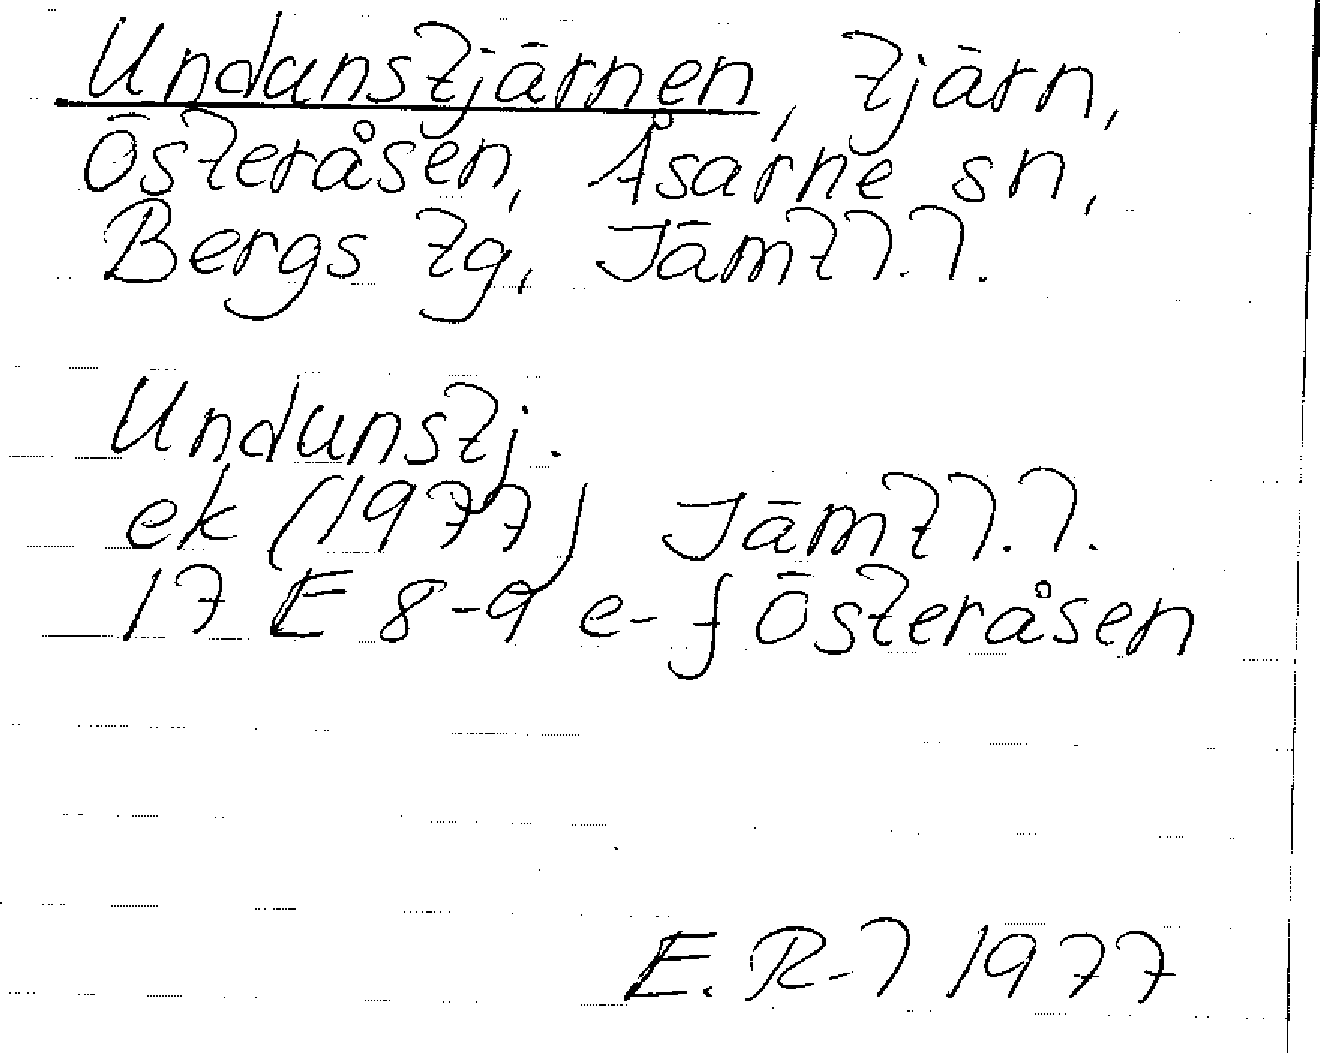 Undanstjärnen, tjärn,
Österåsen, Åsarne sn,
Bergs tg, Jämtl. l.
Undanstj.
ek (1977) Jämtl. l.
17 E 8-9 e-f Österåsen
E. R-l 1977